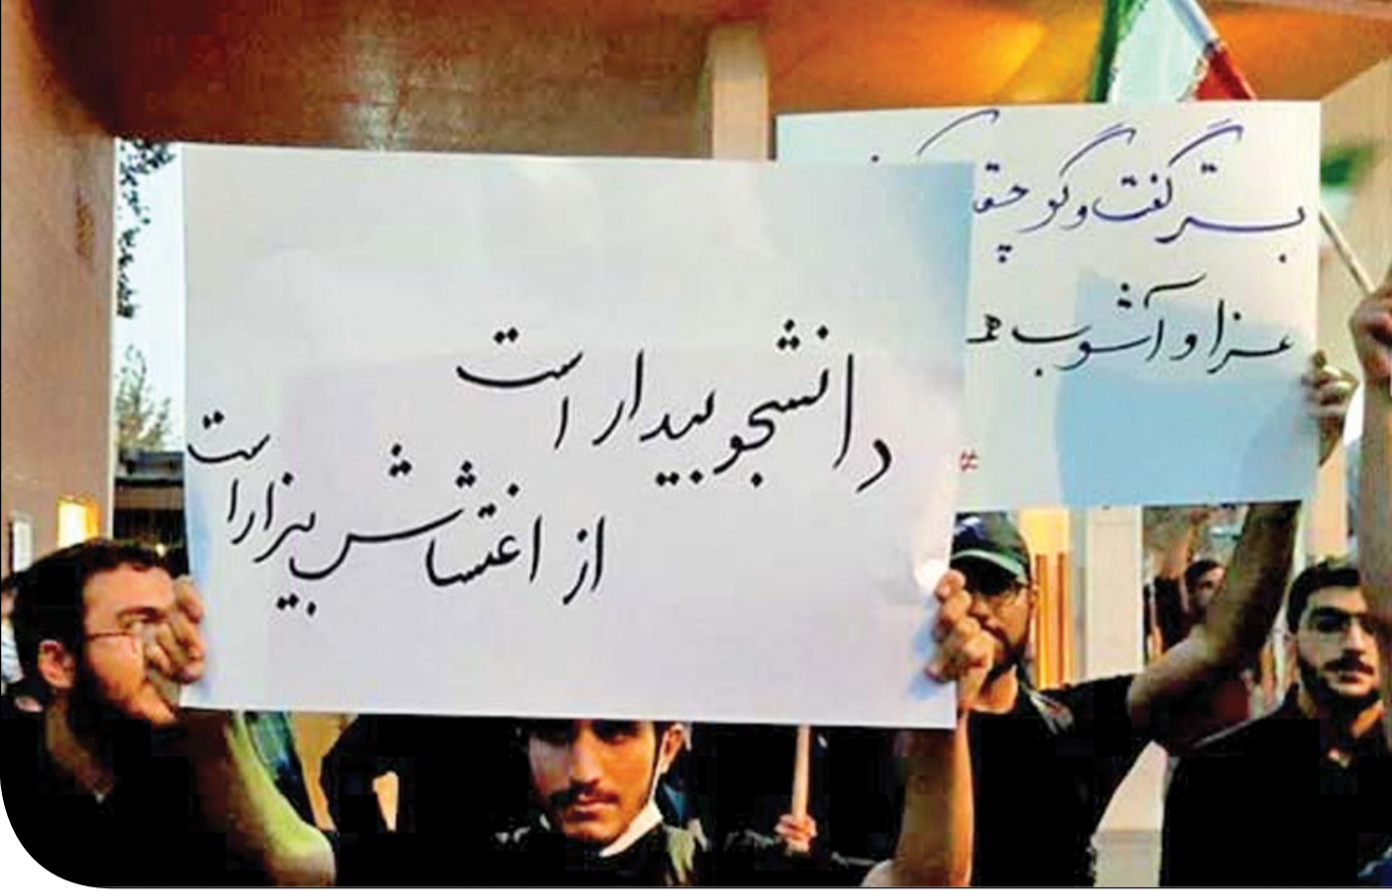 دانشجو بیدار است
از اغتشاش بیزار است
بستر گفت‌وگو
عزا و آشوب